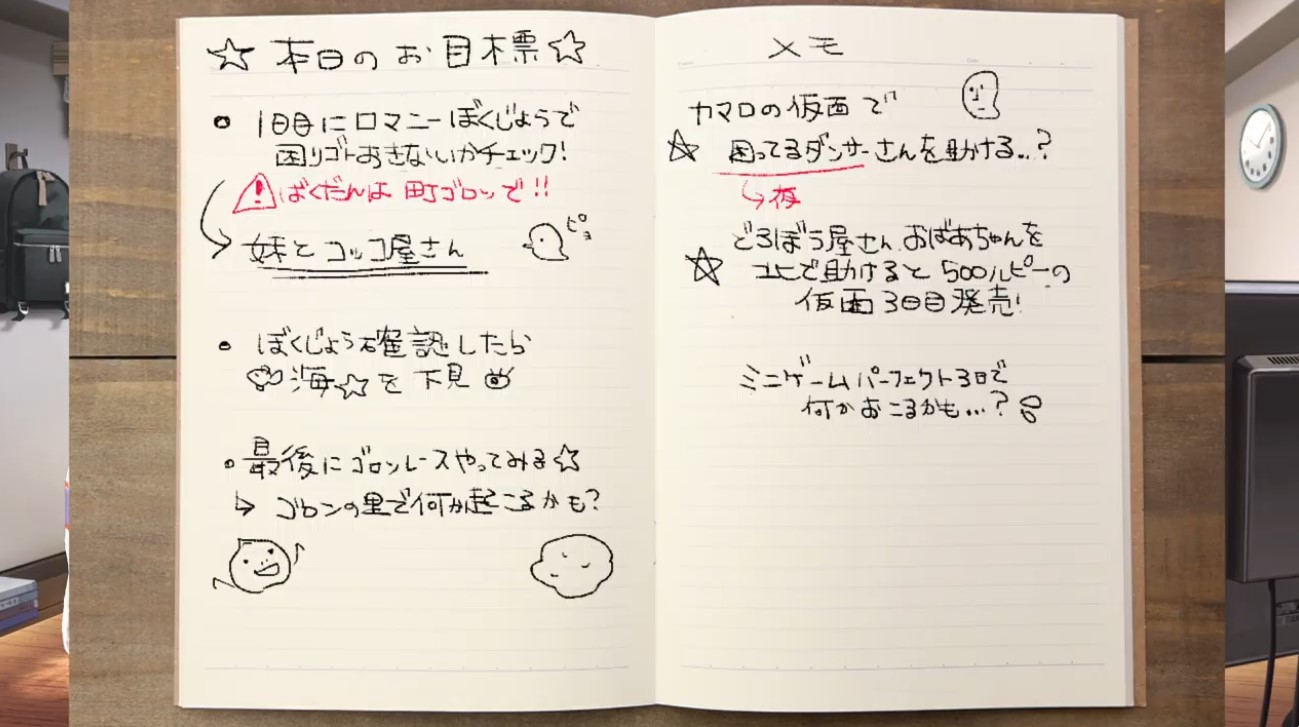 ☆ 本日のお目標 ☆
• 1日目にロマニーぼくじょうで
困りゴトおきないかチェック!
ばくだんは 町ゴロンで!!
妹とコッコ屋さん
ピヨ
• ぼくじょう確認したら
海☆を下見
• 最後にゴロンレースやってみる☆
↳ ゴロンの里で何か起こるかも?
メモ
カマロの仮面で
☆ 困ってるダンサーさんを助ける..?
↳夜
どろぼう屋さん おばあちゃんを
☆ で助けると 500ルピーの
仮面3日目発売!
ミニゲームパーフェクト3日で
何かおこるかも...?